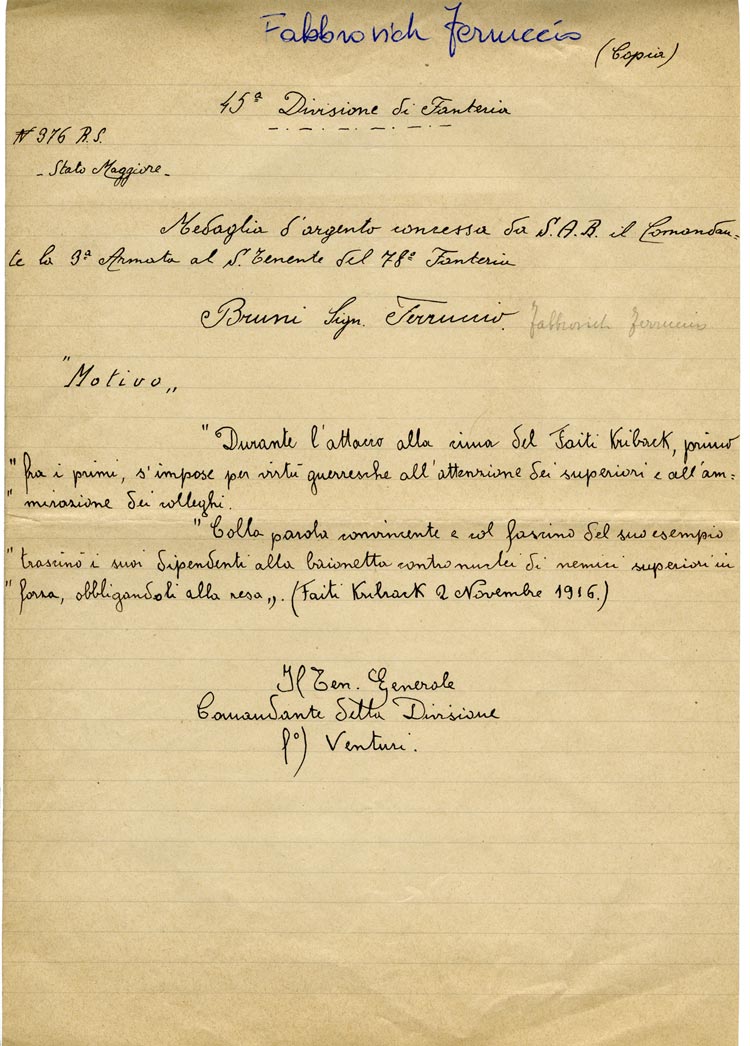 Fabbrovich Ferruccio
(Copia)
45ª Divisione di Fanteria
N 376 R.S.
- Stato Maggiore -
Medaglia d'argento concessa da S.A.R. il Comandan=
te la 3ª Armata al S. Tenente del 78º Fanteria
Bruni Sign. Ferruccio. Fabbrovich Ferruccio
"Motivo„
" Durante l'attacco alla cima del Faiti Kriback, primo
" fra i primi, s'impose per virtù guerresche all'attenzione dei superiori e all'am=
" mirazione dei colleghi.
" Colla parola convincente e col fascino del suo esempio
" trascinò i suoi dipendenti alla baionetta contro nuclei di nemici superiori in
" forza, obbligandoli alla resa„. (Faiti Kriback 2 Novembre 1916.)
Il Ten. Generale
Comandante detta Divisione
fº) Venturi.